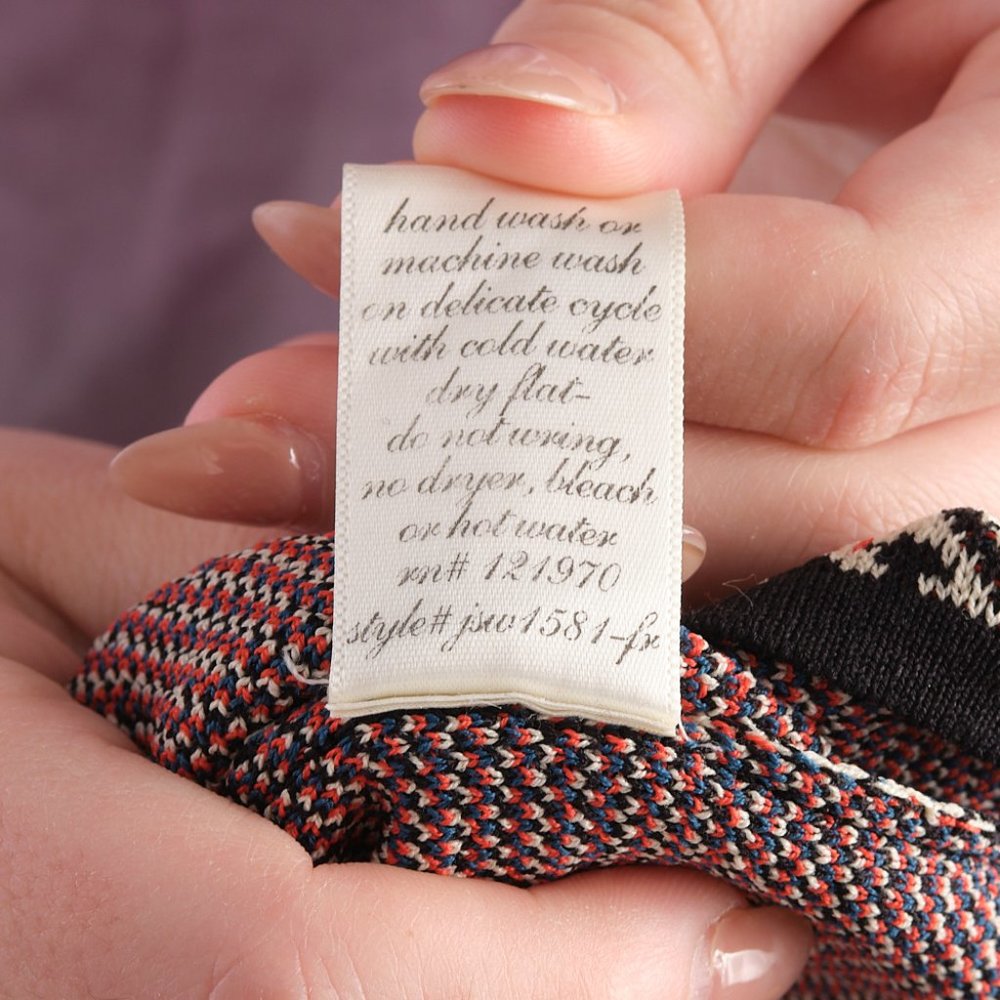 hand wash or
machine wash
on delicate cycle
with cold water
dry flat-
do not wring,
no dryer, bleach
or hot water
rn# 121970
style# jsw1581-fx